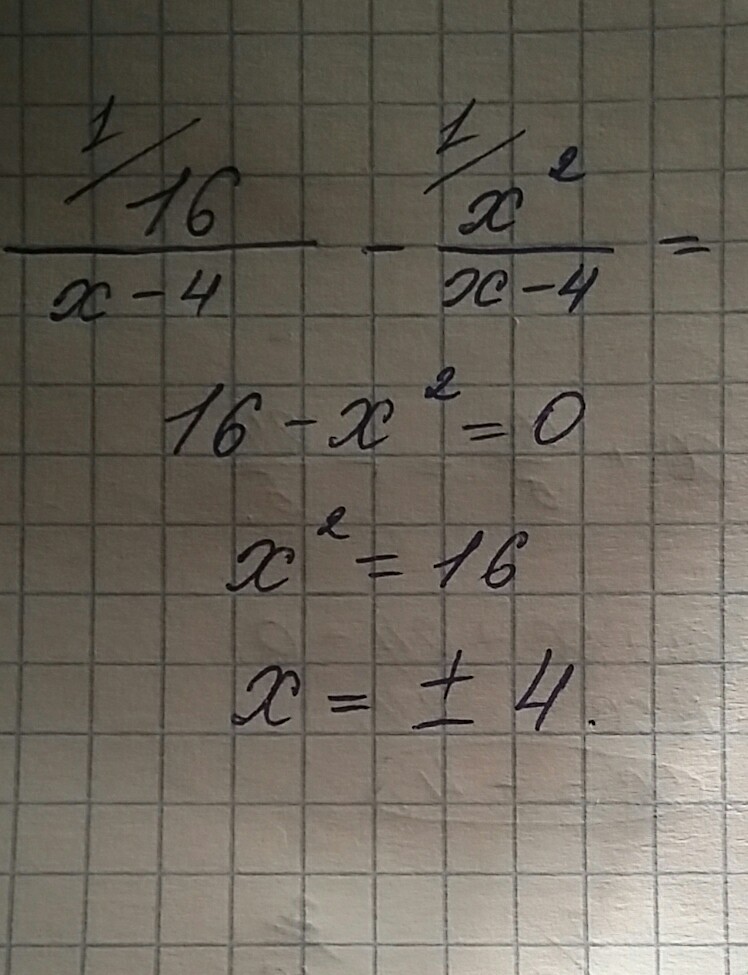 1/16 / x-4 - 1/x² / x-4 =
16-x²=0
x²=16
x=±4.